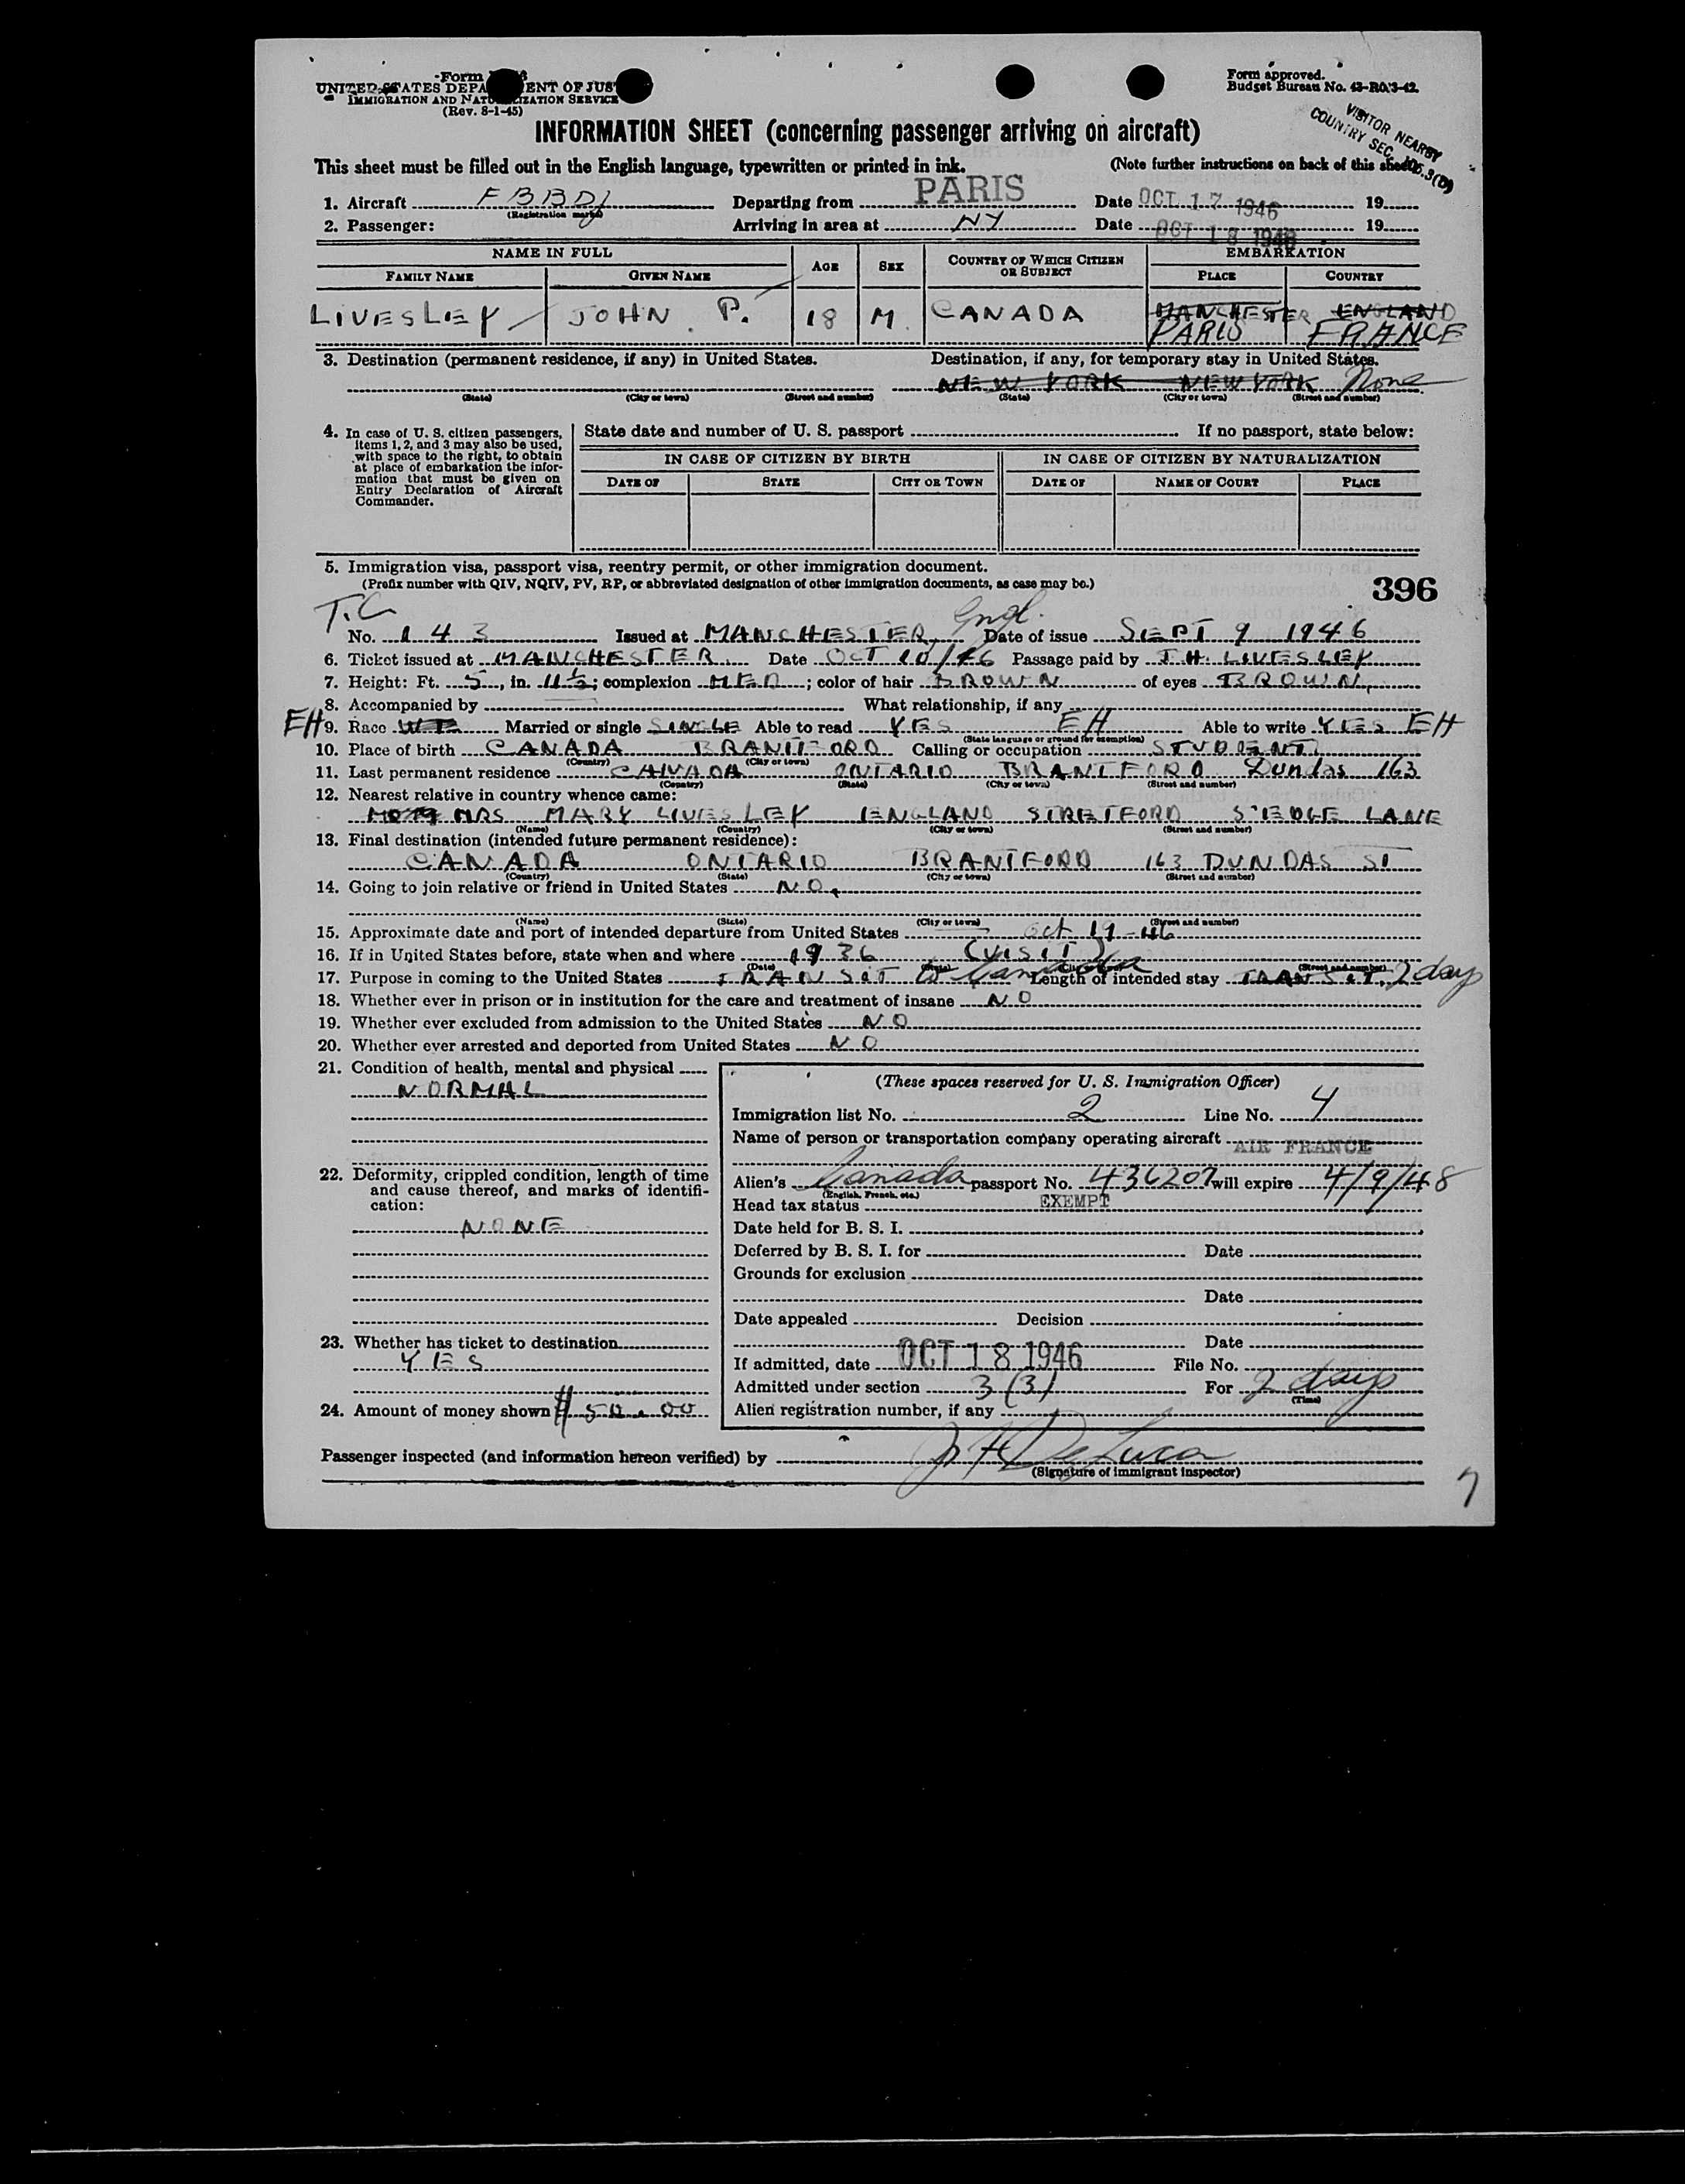 Form
UNITED STATES DEPA ENT OF JUS
IMMIGRATION AND NATU IZATION SERVICE
(Rev. 8-1-45)
Form approved.
Budget Bureau No. 43-RO.3-42.
VISITOR NEARBY
COUNTRY SEC.
INFORMATION SHEET (concerning passenger arriving on aircraft)
This sheet must be filled out in the English language, typewritten or printed in ink. (Note further instructions on back of this sheet)
1. Aircraft F B B D Departing from PARIS Date OCT 17 1946 19
(Registration marks)
2. Passenger: Arriving in area at NY Date OCT 18 1946 19
NAME IN FULL AGE SEX COUNTRY OF WHICH CITIZEN OR SUBJECT EMBARKATION
FAMILY NAME GIVEN NAME PLACE COUNTRY
LIVESLEY JOHN. P. 18 M. CANADA MANCHESTER ENGLAND
PARIS FRANCE
3. Destination (permanent residence, if any) in United States. Destination, if any, for temporary stay in United States.
NEW YORK NEW YORK None
(State) (City or town) (Street and number) (State) (City or town) (Street and number)
4. In case of U. S. citizen passengers, items 1, 2, and 3 may also be used, with space to the right, to obtain at place of embarkation the information that must be given on Entry Declaration of Aircraft Commander.
State date and number of U. S. passport If no passport, state below:
IN CASE OF CITIZEN BY BIRTH IN CASE OF CITIZEN BY NATURALIZATION
DATE OF STATE CITY OR TOWN DATE OF NAME OF COURT PLACE
5. Immigration visa, passport visa, reentry permit, or other immigration document.
(Prefix number with QIV, NQIV, PV, RP, or abbreviated designation of other immigration documents, as case may be.)
396
T.C
No. 143 Issued at MANCHESTER, Engl. Date of issue SEPT 9 1946
6. Ticket issued at MANCHESTER. Date OCT 10/46 Passage paid by J.H. LIVESLEY
7. Height: Ft. 5, in. 11½; complexion MED; color of hair BROWN of eyes BROWN
8. Accompanied by What relationship, if any
EH 9. Race Married or single SINGLE Able to read YES EH Able to write YES EH
(State language or ground for exemption)
10. Place of birth CANADA BRANTFORD Calling or occupation STUDENT
(Country) (City or town)
11. Last permanent residence CANADA ONTARIO BRANTFORD Dundas 163
(Country) (State) (City or town) (Street and number)
12. Nearest relative in country whence came:
MRS MARY LIVESLEY ENGLAND STRETFORD S'EDGE LANE
(Name) (Country) (City or town) (Street and number)
13. Final destination (intended future permanent residence):
CANADA ONTARIO BRANTFORD 163 DUNDAS ST
(Country) (State) (City or town) (Street and number)
14. Going to join relative or friend in United States NO.
(Name) (State) (City or town) (Street and number)
15. Approximate date and port of intended departure from United States Oct 19-46
16. If in United States before, state when and where 1936 (VISIT)
(Date) (State) (City or town) (Street and number)
17. Purpose in coming to the United States TRANSIT to Canada Length of intended stay TRANSIT. 2 days
18. Whether ever in prison or in institution for the care and treatment of insane NO
19. Whether ever excluded from admission to the United States NO
20. Whether ever arrested and deported from United States NO
21. Condition of health, mental and physical
NORMAL
22. Deformity, crippled condition, length of time and cause thereof, and marks of identification:
NONE
23. Whether has ticket to destination
YES
24. Amount of money shown $50.00
(These spaces reserved for U. S. Immigration Officer)
Immigration list No. 2 Line No. 4
Name of person or transportation company operating aircraft
AIR FRANCE
Alien's Canada passport No. 436207 will expire 4/9/48
(English, French, etc.)
Head tax status EXEMPT
Date held for B. S. I.
Deferred by B. S. I. for Date
Grounds for exclusion
Date
Date appealed Decision
Date
If admitted, date OCT 18 1946 File No.
Admitted under section 3 (3) For 2 days
(Time)
Alien registration number, if any
Passenger inspected (and information hereon verified) by De Luca
(Signature of immigrant inspector)
7